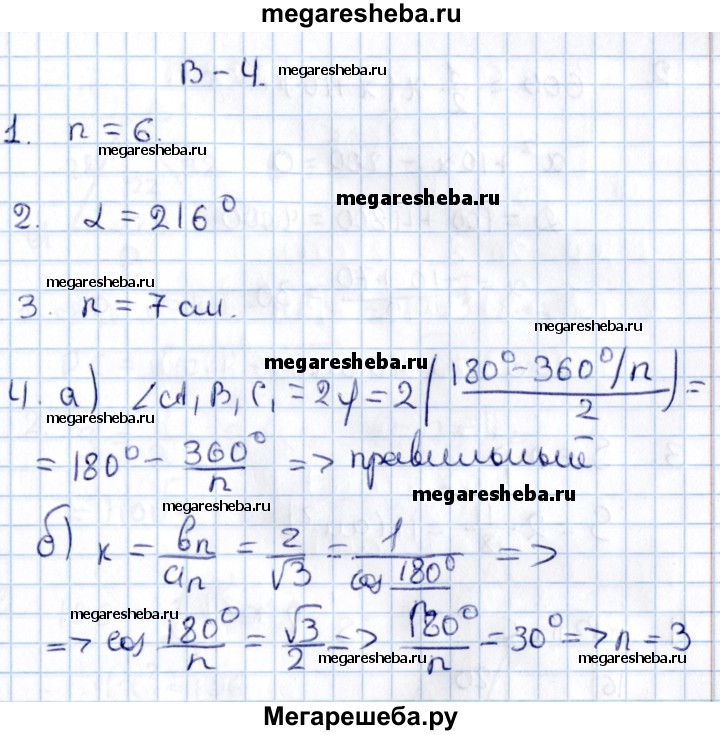 megaresheba.ru
В – 4. megaresheba.ru
1. n = 6.
megaresheba.ru
2. α = 216°
megaresheba.ru
megaresheba.ru
3. n = 7 см.
megaresheba.ru
megaresheba.ru
4. а) ∠A₁B₁C₁ = 2φ = 2((180° – 360°/n)/2) =
megaresheba.ru
= 180° – 360°/n => правильный
megaresheba.ru
megaresheba.ru
б) к = bn/an = 2/√3 = 1/(cos 180°) =>
megaresheba.ru
=> cos 180°/n = √3/2 => 180°/n = 30° => n = 3
megaresheba.ru megaresheba.ru
Мегарешеба.ру